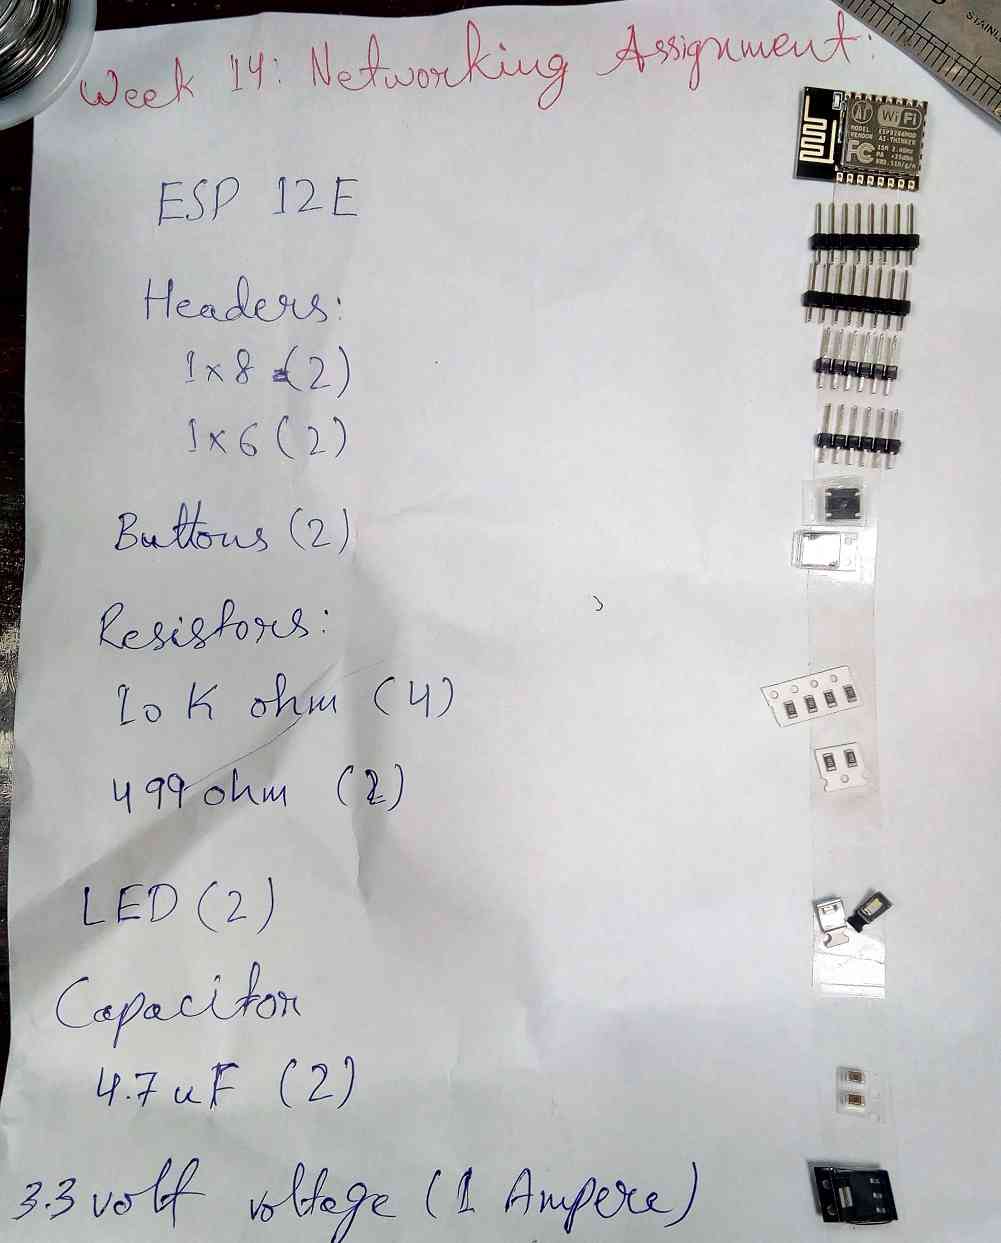 Week 14: Networking Assignment:
ESP 12E
Headers:
1x8 (2)
1x6 (2)
Buttons (2)
Resistors:
10 K ohm (4)
499 ohm (2)
LED (2)
Capacitor
4.7 uF (2)
3.3 volt voltage (1 Ampere)
WiFi
MODEL
VENDOR
ESP8266MOD
AI-THINKER
ISM 2.4GHz
PA +25dBm
802.11b/g/n
FC